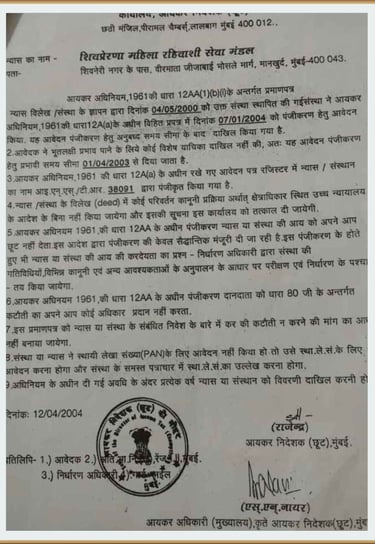 कार्यालय, आयकर निदेशक (छूट)
छठी मंजिल, पीरामल चैम्बर्स, लालबाग मुंबई 400 012..
न्यास का नाम - शिवप्रेरणा महिला रहिवाशी सेवा मंडल
पता- शिवनेरी नगर के पास, वीरमाता जीजाबाई भोसले मार्ग, मानखुर्द, मुंबई-400 043.
आयकर अधिनियम,1961की धारा 12AA(1)(b)(i)के अन्तर्गत प्रमाणपत्र
न्यास विलेख /संस्था के ज्ञापन द्वारा दिनांक 04/05/2000 को उक्त संस्था स्थापित की गईसंस्था ने आयकर
अधिनियम,1961की धारा12A(a)के अधीन विहित प्रपत्र में दिनांक 07/01/2004 को पंजीकरण हेतु आवेदन
किया. यह आवेदन पंजीकरण हेतु अनुबध्द समय सीमा के बाद दाखिल किया गया है.
2.आवेदक ने भूतलक्षी प्रभाव पाने के लिये कोई विशेष याचिका दाखिल नहीं की, अतः यह आवेदन पंजीकरण
हेतु प्रभावी समय सीमा 01/04/2003 से दिया जाता है.
3.आयकर अधिनियम 1961 की धारा 12A(a) के अधीन रखे गए आवेदन पत्र रजिस्टर में न्यास / संस्थान
का नाम आइ.एन.एस./टी.आर. 38091 द्वारा पंजीकृत किया गया है.
4.न्यास /संस्था के विलेख (deed) में कोई परिवर्तन कानूनी प्रक्रिया अर्थात् क्षेत्राधिकार स्थित उच्च न्यायालय
के आदेश के बिना नहीं किया जायेगा और इसकी सूचना इस कार्यालय को तत्काल दी जायेगी.
5.आयकर अधिनियम 1961 की धारा 12AA के अधीन पंजीकरण न्यास या संस्था की आय को अपने आप
छूट नहीं देता.इस आदेश द्वारा पंजीकरण की केवल सैद्धान्तिक मंजूरी दी जा रही है.इस पंजीकरण के होते
हुए भी न्यास या संस्था की आय की करदेयता का प्रश्न - निर्धारण अधिकारी द्वारा संस्था की
गतिविधियों,विभिन्न कानूनी एवं अन्य आवश्यकताओं के अनुपालन के आधार पर परीक्षण एवं निर्धारण के पश्चा
- तय किया जायेगा.
6.आयकर अधिनियम 1961 की धारा 12AA के अधीन पंजीकरण दानदाता को धारा 80 जी के अन्तर्गत
कटौती का अपने आप कोई अधिकार प्रदान नहीं करता.
7.इस प्रमाणपत्र को न्यास या संस्था के संबंधित निवेश के बारे में कर की कटौती न करने की मांग का आ
नहीं बनाया जायेगा.
8.संस्था या न्यास ने स्थायी लेखा संख्या(PAN)के लिए आवेदन नहीं किया हो तो उसे स्था.ले.सं.के लिए
आवेदन करना होगा और संस्था के समस्त पत्राचार में स्था.ले.सं.का उल्लेख करना होगा.
9.अधिनियम के अधीन दी गई अवधि के अंदर प्रत्येक वर्ष न्यास या संस्थान को विवरणी दाखिल करनी हो
दिनांक: 12/04/2004
(राजेन्द्र)
आयकर निदेशक (छूट),मुंबई.
प्रतिलिपि- 1.) आवेदक 2.) मुंबई.
3.) निर्धारण अधिकारी
(एस.एन.नायर)
आयकर अधिकारी (मुख्यालय),कृते आयकर निदेशक(छूट),मुंब